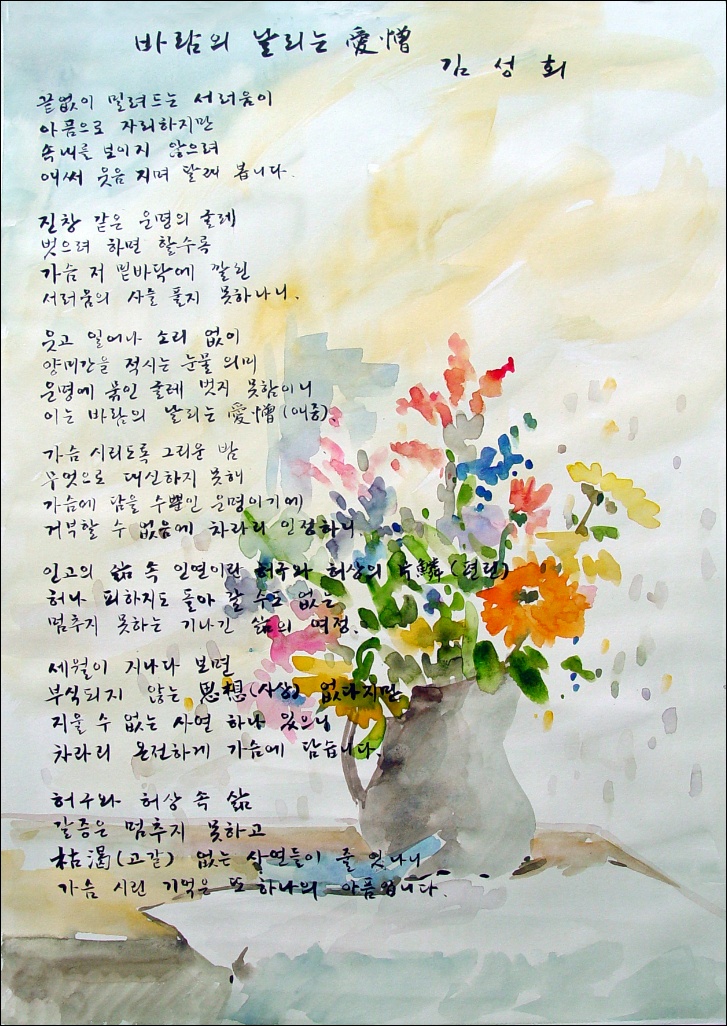 바람의 날리는 愛憎
김 성 회
끝없이 밀려드는 서러움이
아픔으로 자리하지만
속내를 보이지 않으려
애써 웃음 지며 달래 봅니다.
진창 같은 운명의 굴레
벗으려 하면 할수록
가슴 저 밑바닥에 깔린
서러움의 사를 풀지 못하나니.
웃고 일어나 소리 없이
양미간을 적시는 눈물 의미
운명에 묶인 굴레 벗지 못함이니
이는 바람의 날리는 愛憎(애증).
가슴 시리도록 그리운 밤
무엇으로 대신하지 못해
가슴에 담을 수뿐인 운명이기에
거부할 수 없음에 차라리 인정하니.
인고의 삶 속 인연이란 허구와 허상의 片鱗(편린)
허나 피하지도 돌아 갈 수도 없는
멈추지 못하는 기나긴 삶의 여정.
세월이 지나다 보면
부식되지 않는 思想(사상) 없다지만
지울 수 없는 사연 하나 있으니
차라리 온전하게 가슴에 담습니다.
허구와 허상 속 삶
갈증은 멈추지 못하고
枯渴(고갈) 없는 사연들이 줄 잇나니
가슴 시린 기억은 또 하나의 아픔입니다.